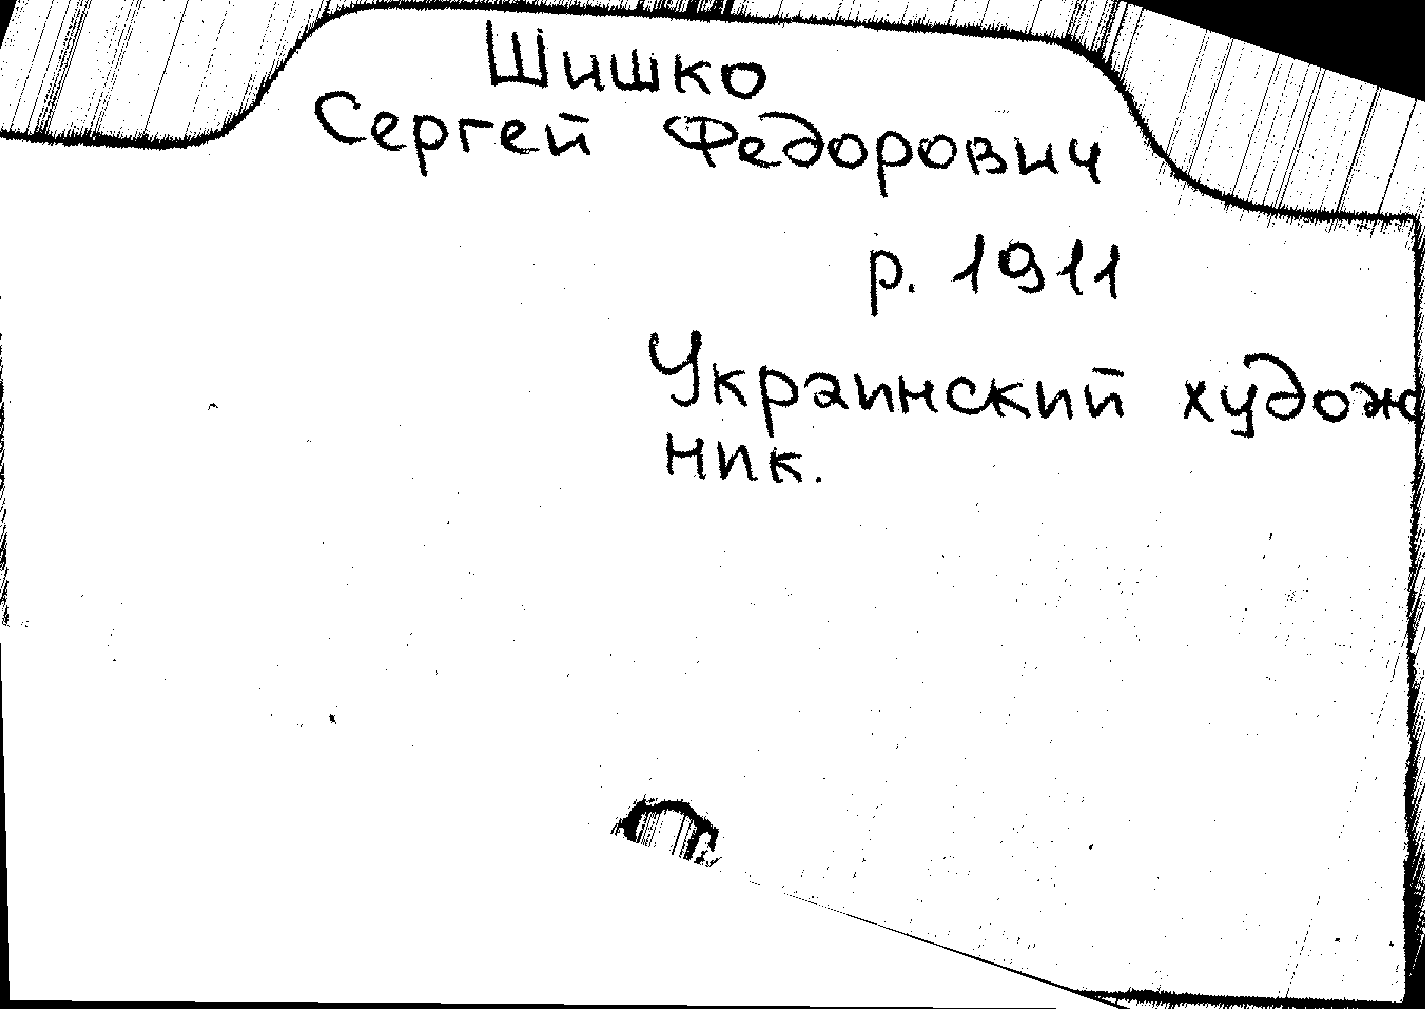 Шишко
Сергей Федорович
р. 1911
Украинский худож
ник.